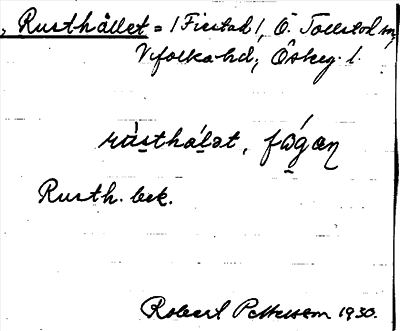 , Rusthållet = /Fiestad/, Ö. Tollstad sn,
Vifolka hd, Öskög. l.
rùsthá̱ḻət, fǻ̱gæɳ
Rusth. bek.
Robert Pettersson 1930.